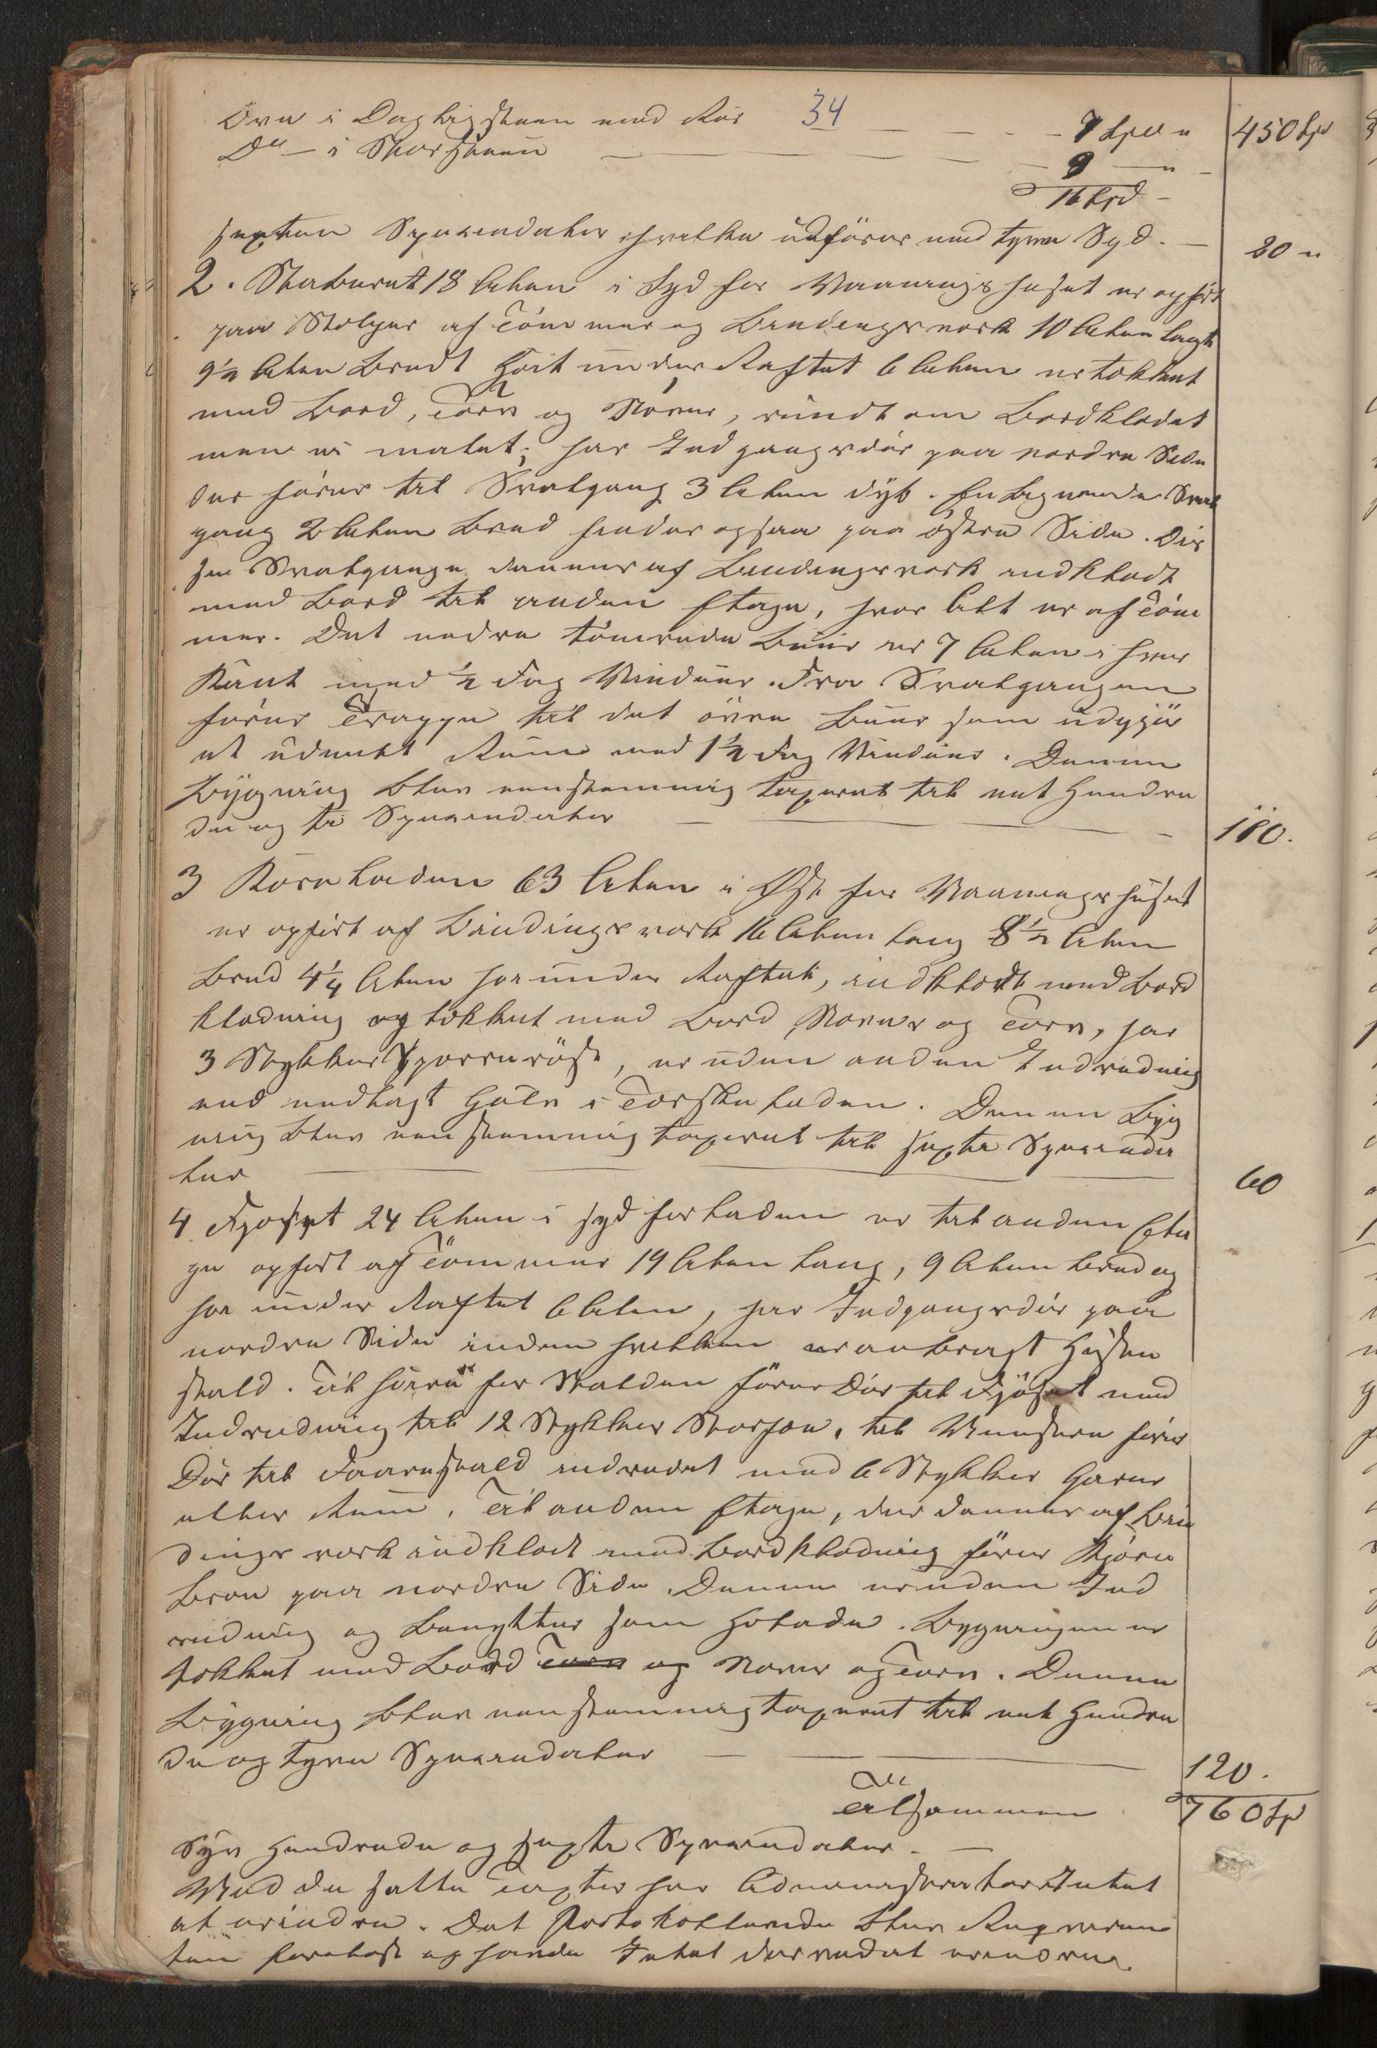 Ovn i Dagligstuen med Rør 34 — 7 Spd " 450 Spd
Do — i Storstuen — 9 — "
16 Spd —
sexten Speciedaler hvilke udføres med tyve Spd. — 20 "
2. Stabburet 18 Alen i Syd for Vaaningshuset er opført
paa Stolper af Tømmer og Bindingsverk 10 Alen langt
9½ Alen bredt Høit under Raftet 6 Alen er tækket
med Bord, Torv og Næver, rundt om Bordklædet
men ei malet; har Indgangsdør paa nordre Side
der fører til Svalgang 3 Alen dyb. En lignende Sval
gang 2 Alen bred findes ogsaa paa østre Side. Dis
se Svalgange dannes af Bindingsverk indklædt
med Bord til anden Etage, hvor Alt er af Tøm
mer. Det nedre tømrede Buur er 7 Alen i hver
Kant med ½ Fag Vinduer. Fra Svalgangen
fører Trappe til det øvre Buur som udgjør
et udeelt Rum med 1½ Fag Vinduer. Denne
Bygning blev eenstemmig taxeret til eet Hundre
de og ti Speciedaler — 110.
3 Kornladen 63 Alen i Øst for Vaaningshuset
er opført af Bindingsverk 16 Alen lang 8½ Alen
bred 4¼ Alen høi under Raftet, indklædt med Bord
klædning og tækket med Bord Næver og Torv, har
3 Stykker Sperrerøst, er uden anden Indredning
end nedlagt Gulv i Tørskeladen. Denne Byg
ning blev eenstemmig taxeret til sexti Specieda
ler — 60
4 Fjøset 24 Alen i Syd for Laden er til anden Eta
ge opført af Tømmer 19 Alen lang, 9 Alen bred og
høi under Raftet 6 Alen, har Indgangsdør paa
nordre Side inden hvilken er anbragt Heste
stald. Til høire for Stalden fører Dør til Fjøset med
Indredning til 12 Stykker Storfæ, til Venstre fører
Dør til Faarestald indredet med 6 Stykker Garer
eller Rum. Til anden Etage, der dannes af Bin
dingsverk indklædt med Bordklædning fører Kjøre
bro paa nordre Side. Denne er uden Ind
redning og benyttes som Høladе. Bygningen er
tækket med Bord Torv og Næver og Torv. Denne
Bygning blev eenstemmig taxeret til eet Hundre
de og tyve Speciedaler — 120.
Tilsammen 760 Spd
Syv Hundrede og sexti Speciedaler. —
Med de satte Taxter har Administrator Intet
at erindre. Det Protokollerede blev Reqvirenten
forelæst og havde Intet derved at erindre.